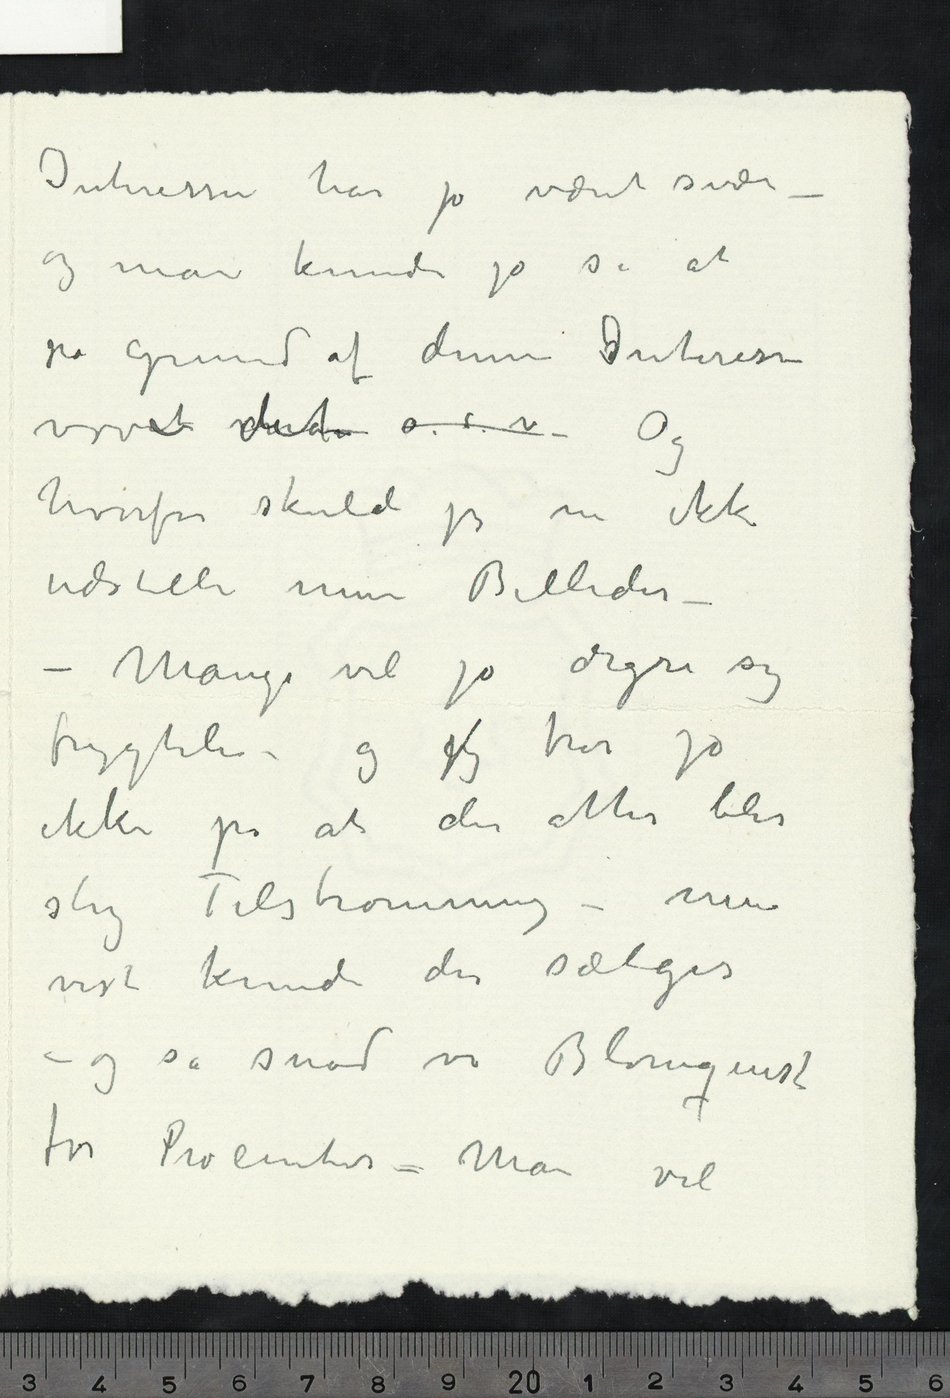 Interessen har jo været svær –
og man kunde jo sa at
pa Grund af denne Interesse
vovet dette o. s. v. – Og
hvorfor skuld jeg nu ikke
udstille mine Billeder –
– Mange vil jo ærgre sig
frygtelig – og jeg tror jo
ikke pa at der atter blir
slig Tilstrømning – men
vist kunde der sælges
– og sa snød vi Blomquist
for Procenter – Man vil
3 4 5 6 7 8 9 20 1 2 3 4 5 6